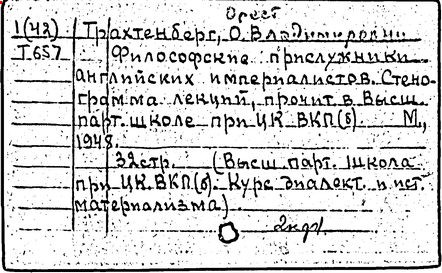 Орест
1(43) Трахтенберг, О. Владимирович
Т657 Философские прислужники
английских империалистов. Стено-
грамма лекций, прочит. в Высш.
парт. школе при ЦК ВКП(б) М.,
1948.
32 стр. (Высш. парт. школа
при ЦК ВКП(б). Курс диалект. и ист.
материализма).